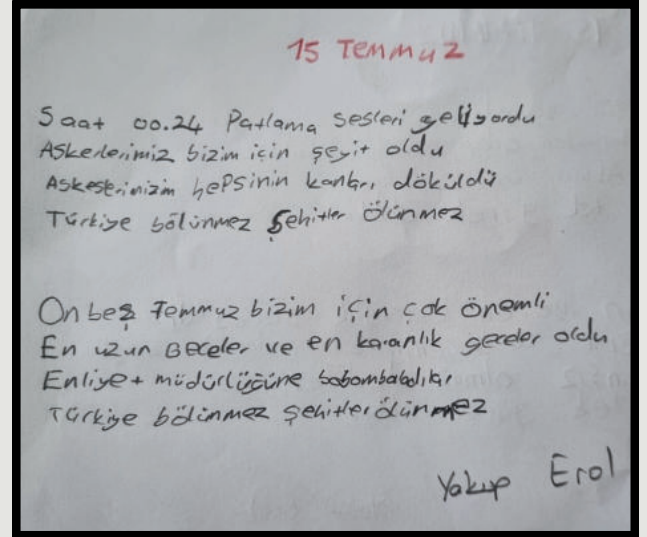 15 Temmuz
Saat 00.24 Patlama sesleri geliyordu
Askerlerimiz bizim için şeyit oldu
Askerlerimizin hepsinin kanları döküldü
Türkiye bölünmez Şehitler ölünmez
On beş Temmuz bizim için çok önemli
En uzun Geceler ve en karanlık geceler oldu
Enliyet müdürlüğüne
Türkiye bölünmez şehitler ölünmez
Yakup Erol